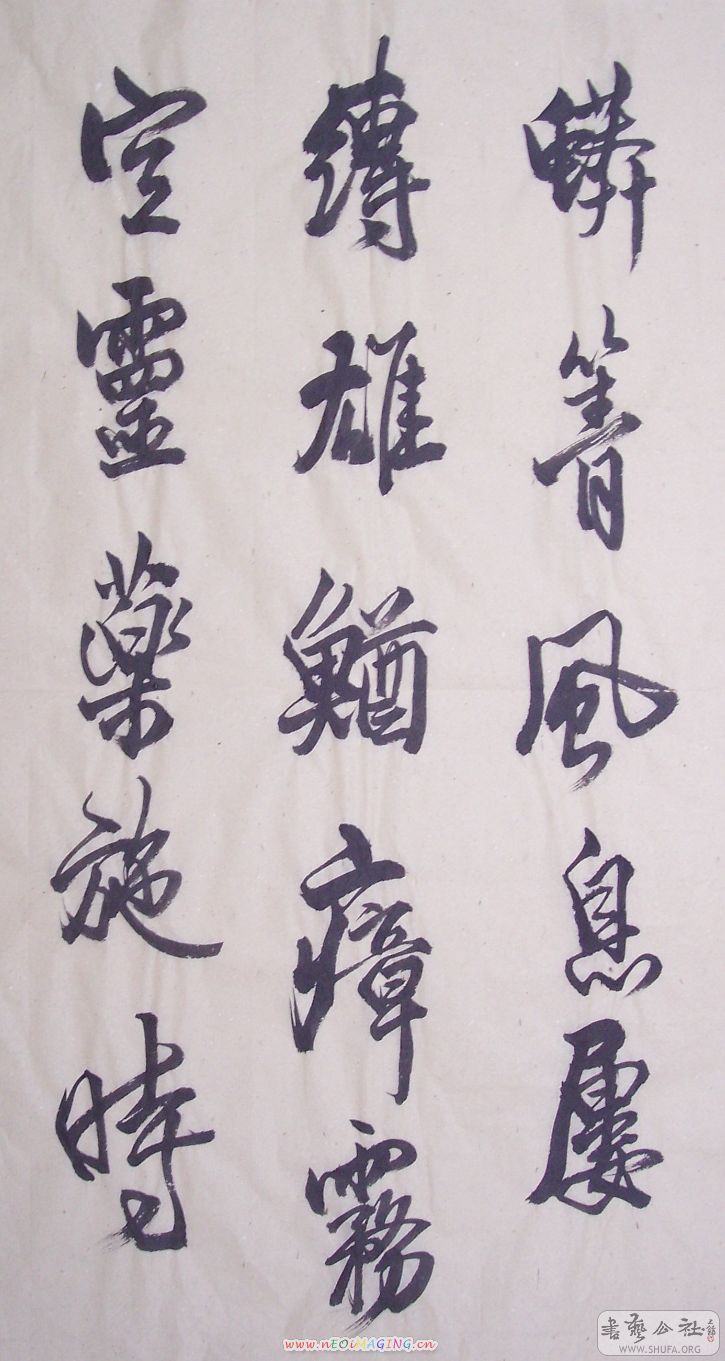 箐風息屢
縛雄鰌瘴霧
空靈藥施時
www.nEOiMAGING.cn
書藝公社
WWW.SHUFA.ORG